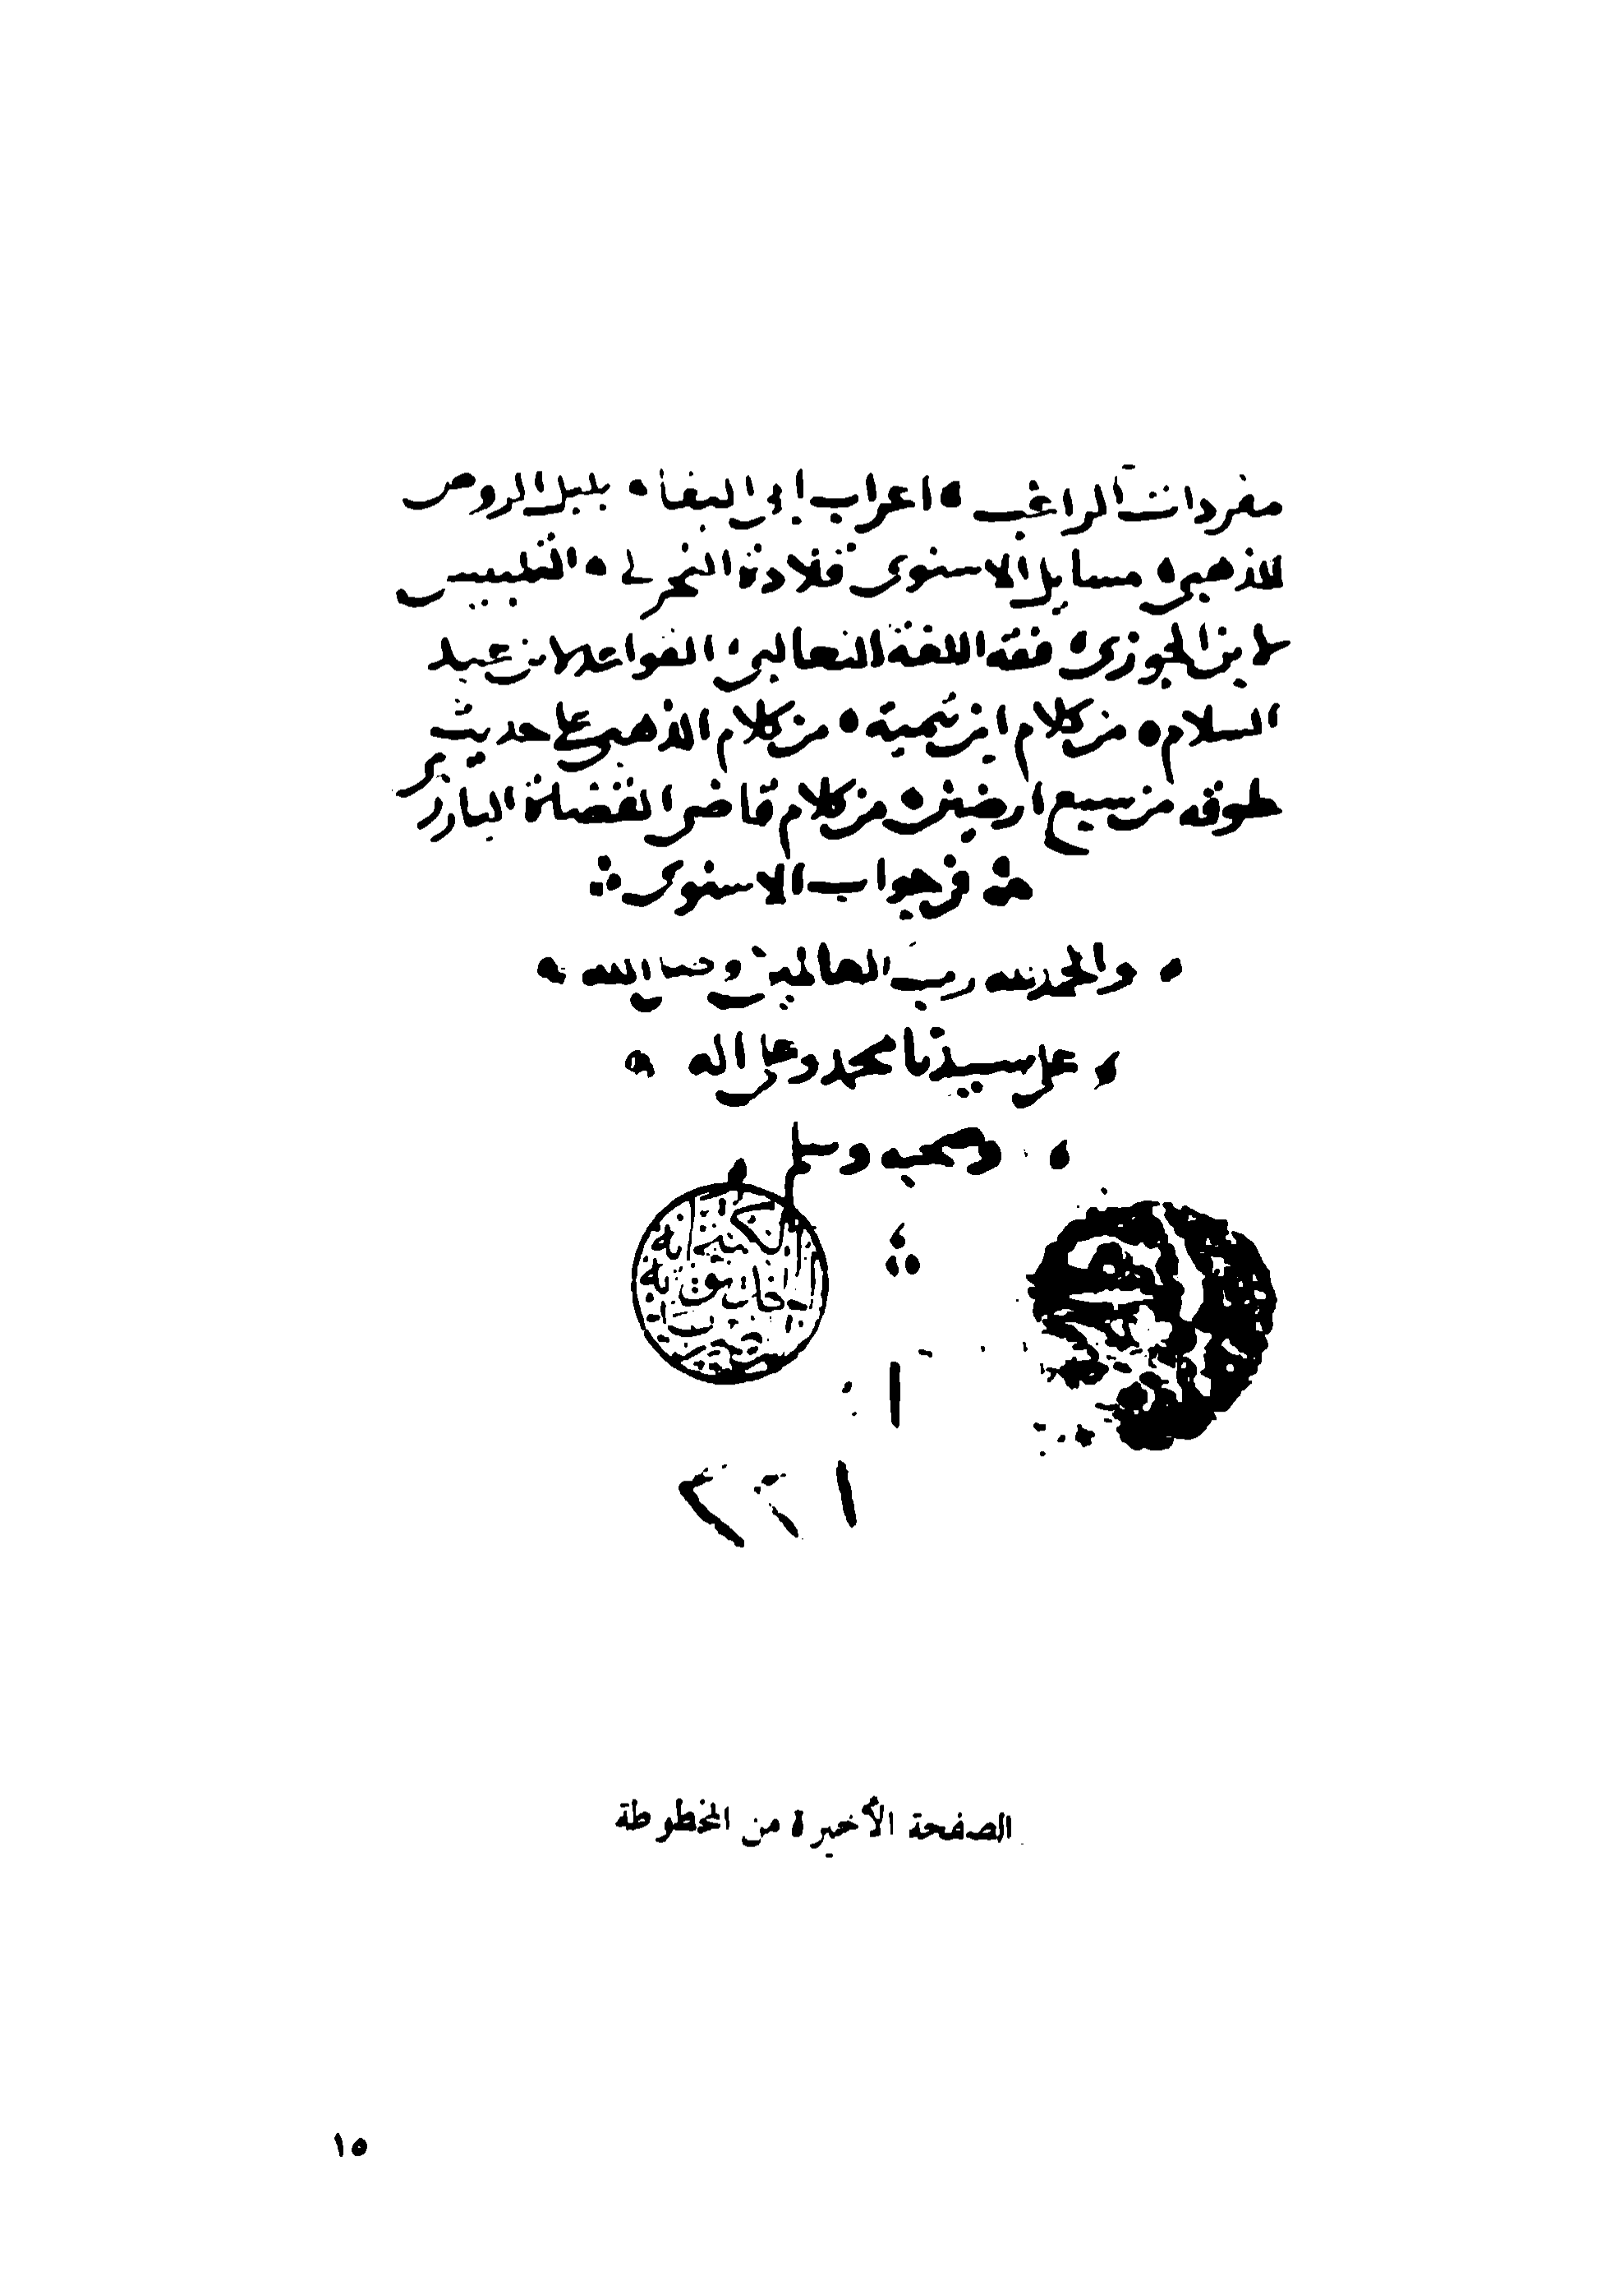 مفردات الراغب ه اعراب ابى البقا ه بلبل الروض
للذهبى ه مسايل الاسنوى قلادة النحر لى ه التلبيس
لابن الجوزى ه فقه اللغة الثعالبى ه القواعد لابن عبد
السلام ه من كلام ابن تيمية ه من كلام الذهبى على حديث
طوقه من سبع ارضين ه من كلام قاضى القضاة البارزى
من جواب الاسنوى ∴
والحمد لله رب العالمين وصلى الله
على سيدنا محمد وعلى اله
وصحبه وسلم
الصفحة الأخيرة من المخطوطة
١٥